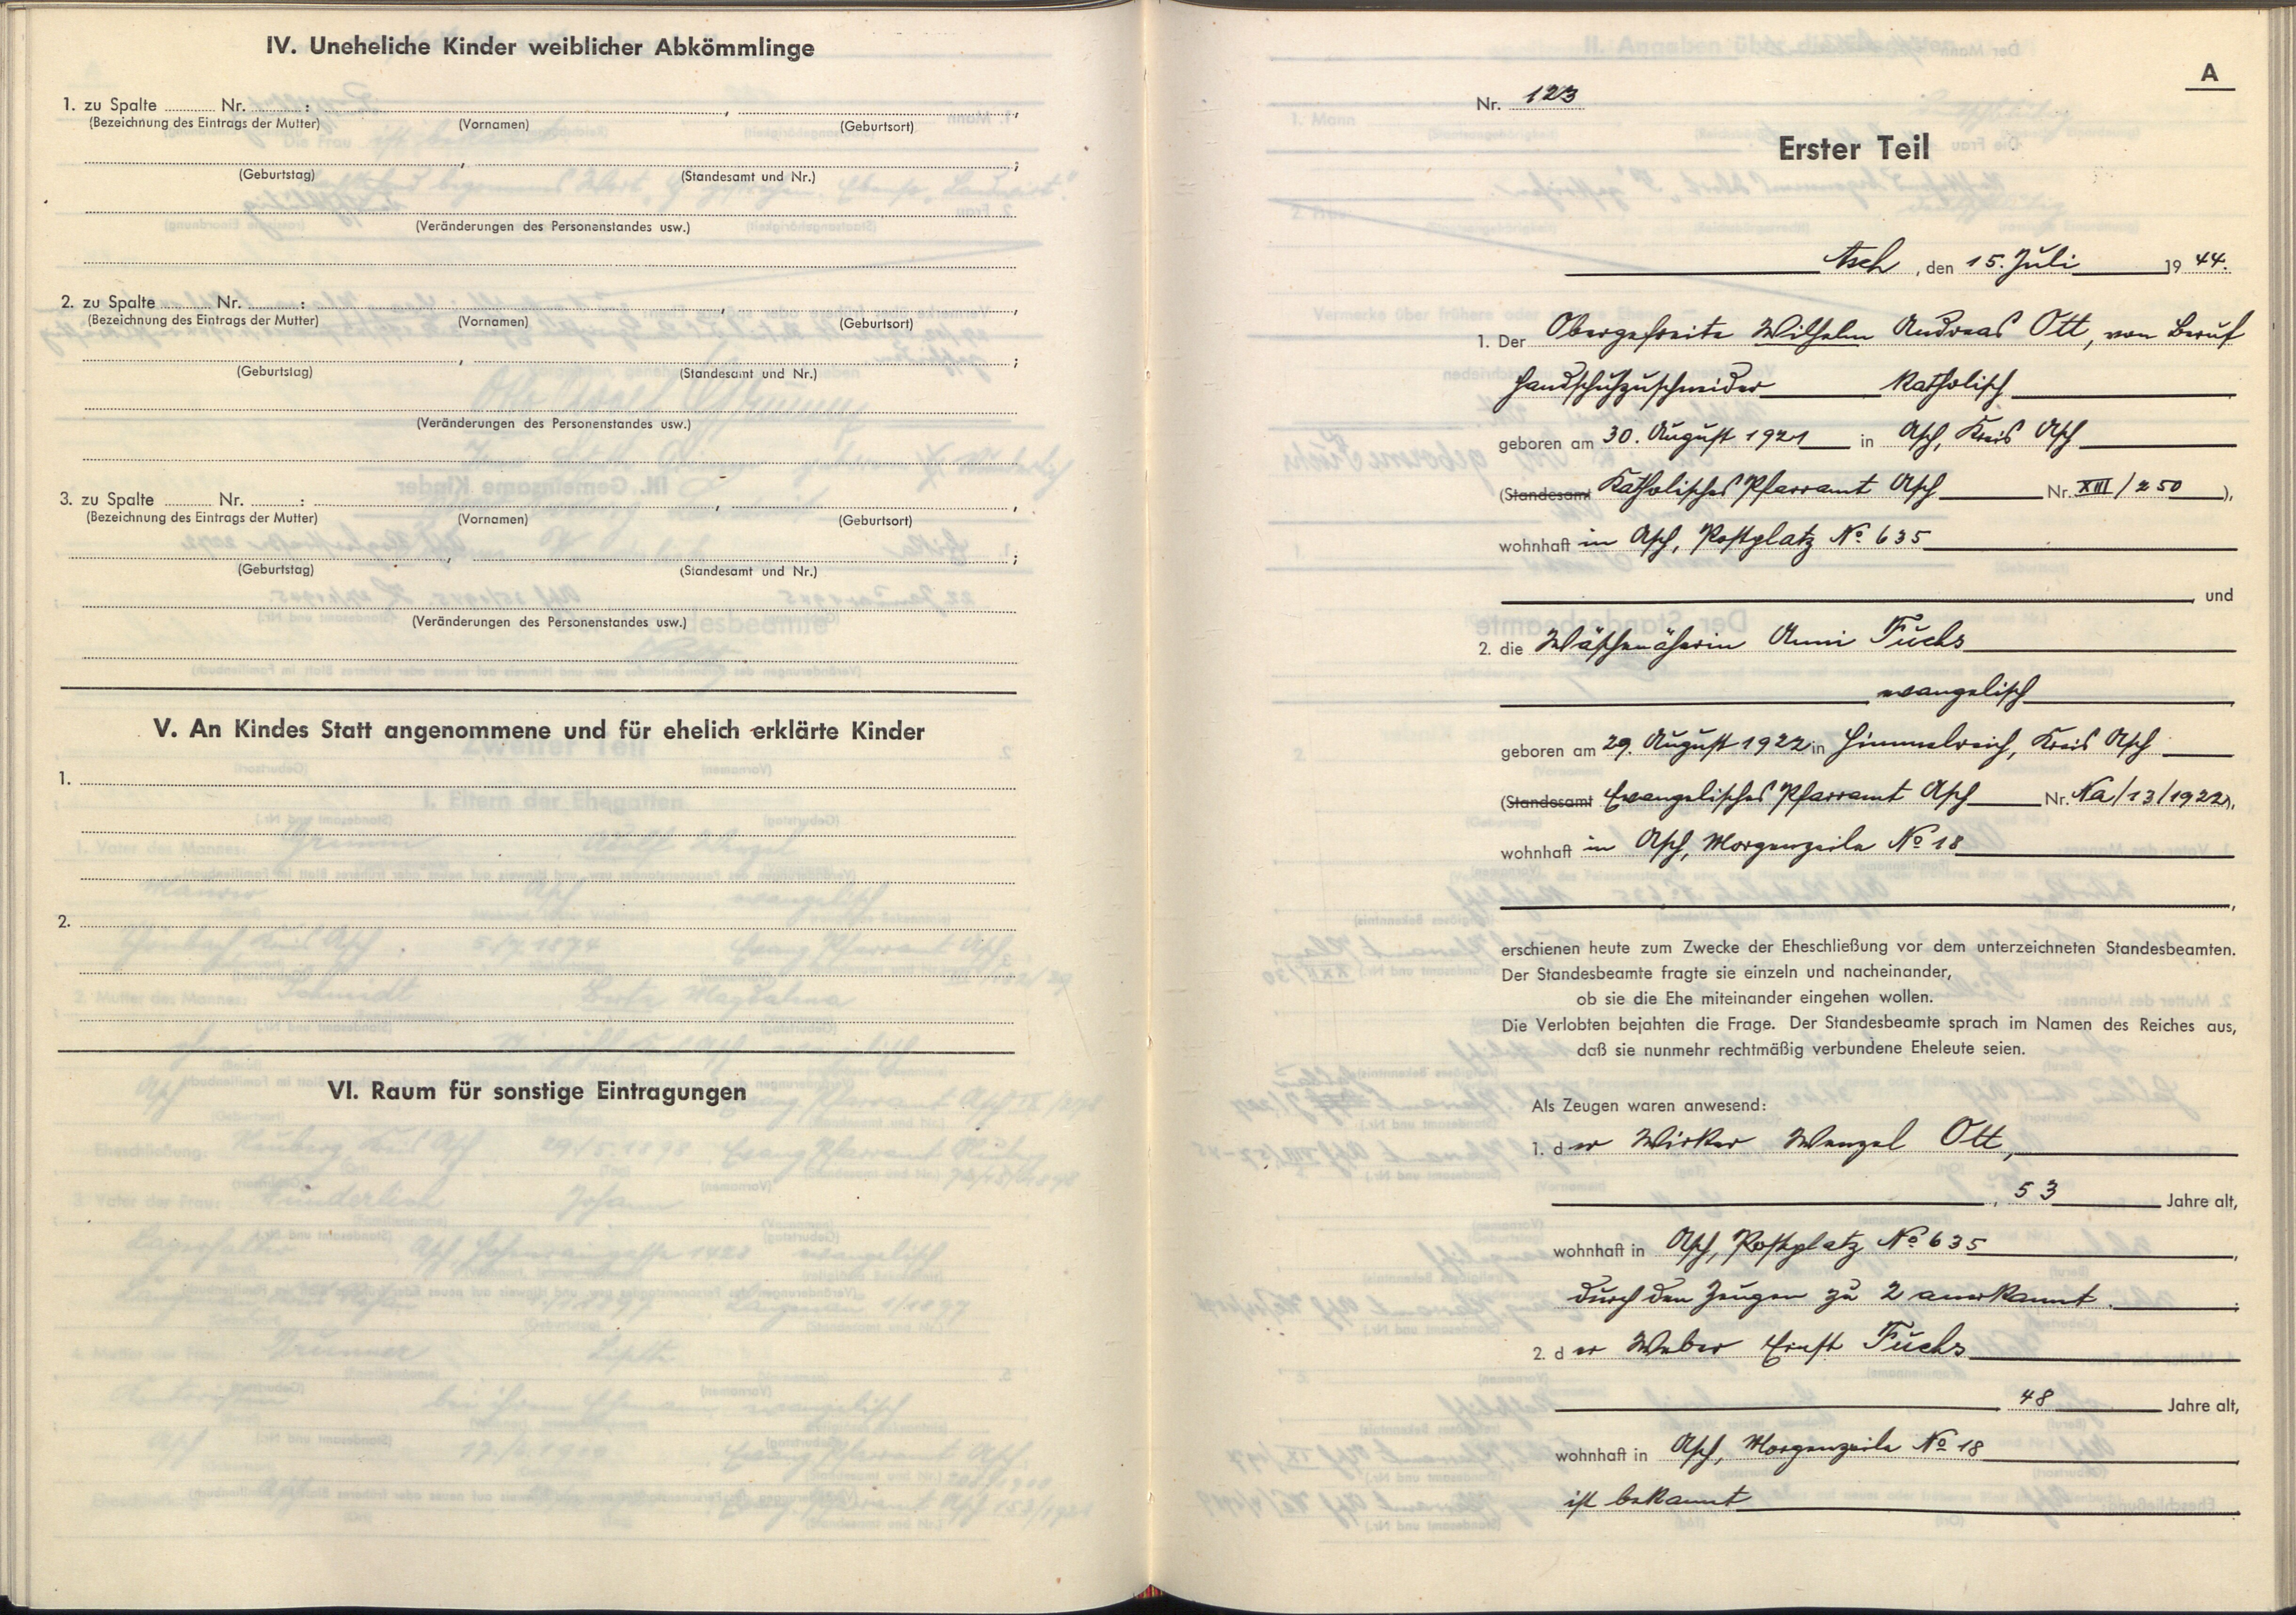 IV. Uneheliche Kinder weiblicher Abkömmlinge
1. zu Spalte Nr. : , ,
(Bezeichnung des Eintrags der Mutter) (Vornamen) (Geburtsort)
, ;
(Geburtstag) (Standesamt und Nr.)
(Veränderungen des Personenstandes usw.)
2. zu Spalte Nr. : , ,
(Bezeichnung des Eintrags der Mutter) (Vornamen) (Geburtsort)
, ;
(Geburtstag) (Standesamt und Nr.)
(Veränderungen des Personenstandes usw.)
3. zu Spalte Nr. : , ,
(Bezeichnung des Eintrags der Mutter) (Vornamen) (Geburtsort)
, ;
(Geburtstag) (Standesamt und Nr.)
(Veränderungen des Personenstandes usw.)
V. An Kindes Statt angenommene und für ehelich erklärte Kinder
1.
2.
VI. Raum für sonstige Eintragungen
A
Nr. 123
Erster Teil
Asch, den 15. Juli 1944.
1. Der Obergefreite Wilhelm Andreas Ott, von Beruf
Handschuhzuschneider katholisch
geboren am 30. August 1921 in Asch, Kreis Asch
(Standesamt Katholisches Pfarramt Asch Nr. XIII/250),
wohnhaft in Asch, Postplatz No 635
, und
2. die Wäschenäherin Anni Fuchs
evangelisch,
geboren am 29. August 1922 in Himmelreich, Kreis Asch
(Standesamt Evangelisches Pfarramt Asch Nr. Na/13/1922),
wohnhaft in Asch, Morgenzeile No 18
,
erschienen heute zum Zwecke der Eheschließung vor dem unterzeichneten Standesbeamten.
Der Standesbeamte fragte sie einzeln und nacheinander,
ob sie die Ehe miteinander eingehen wollen.
Die Verlobten bejahten die Frage. Der Standesbeamte sprach im Namen des Reiches aus,
daß sie nunmehr rechtmäßig verbundene Eheleute seien.
Als Zeugen waren anwesend:
1. der Wirker Wenzel Ott,
, 53 Jahre alt,
wohnhaft in Asch, Postplatz No 635,
durch den Zeugen zu 2 anerkannt.
2. der Weber Ernst Fuchs
, 48 Jahre alt,
wohnhaft in Asch, Morgenzeile No 18
ist bekannt